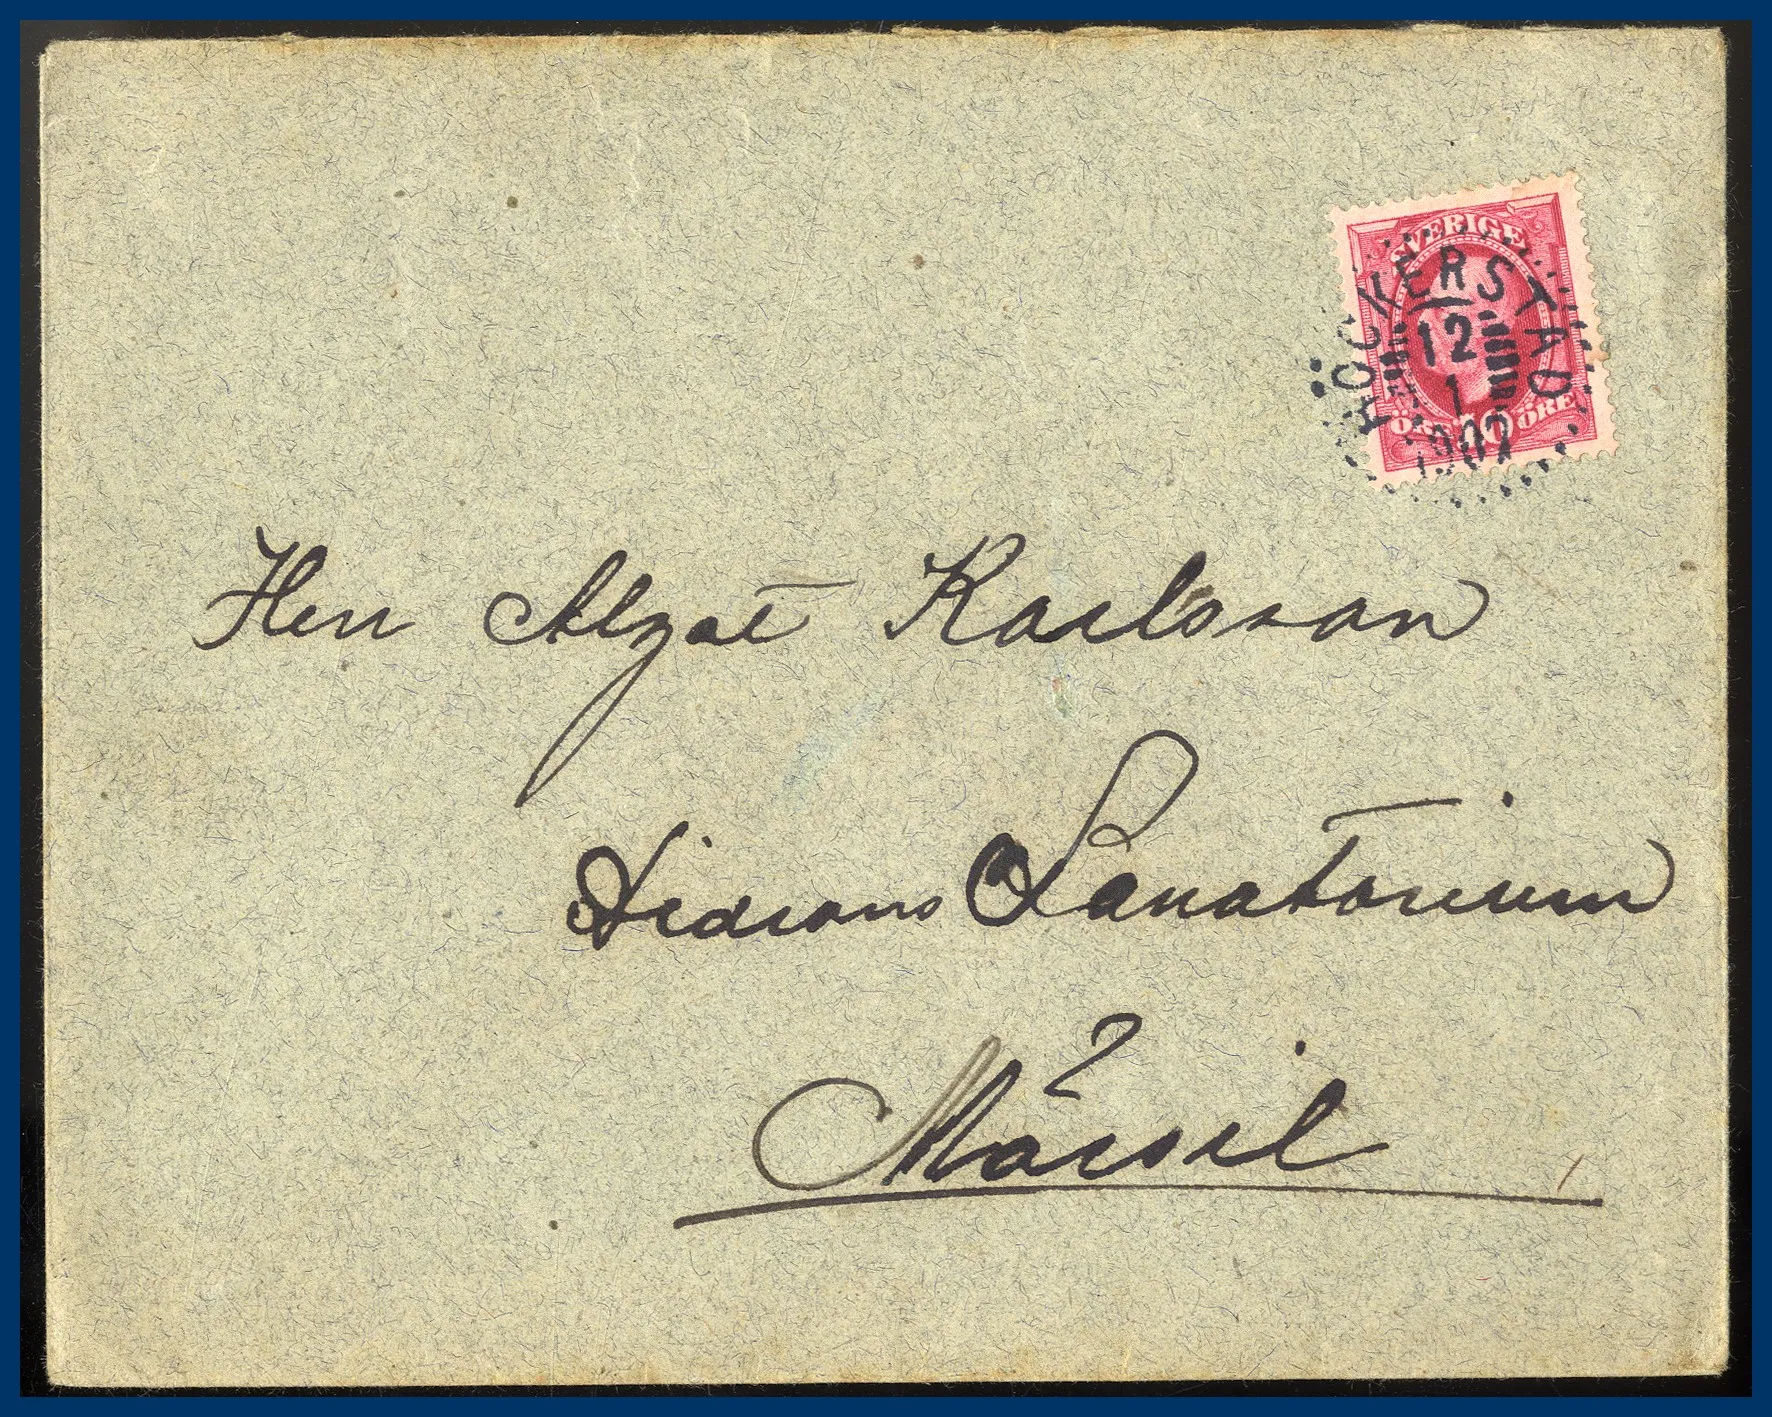 SVERIGE
HÖCKERSTAD
12
1
1907
ÖRE 10 ÖRE
Herr Algot Karlsson
Sanatorium
Mörsil